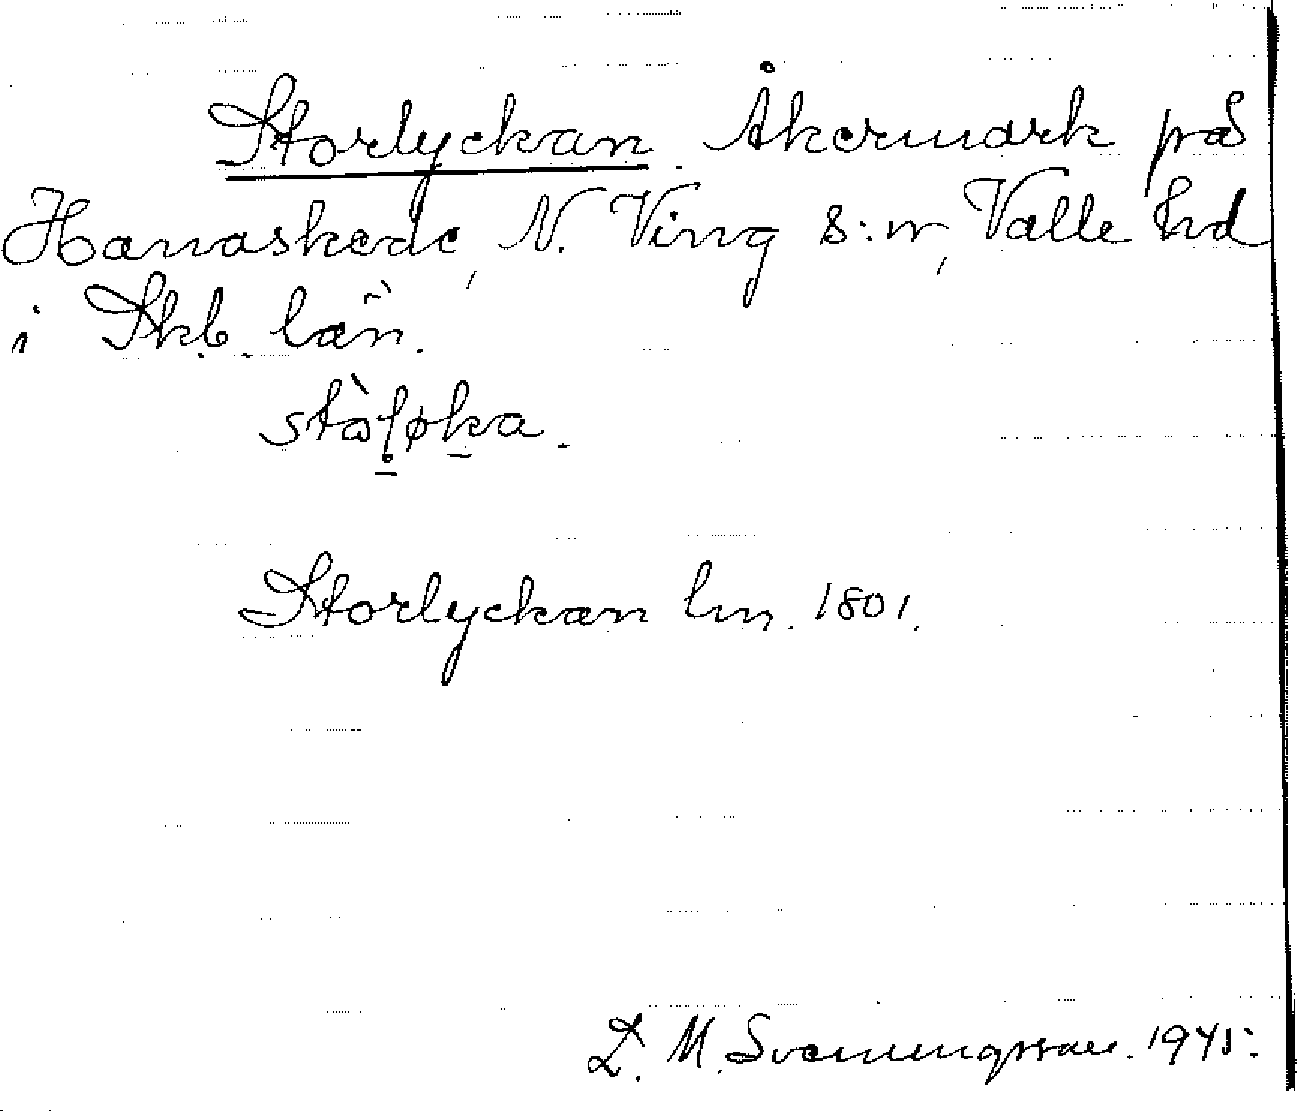 Storlyckan. Åkermark på
Hanaskede, N. Ving s:n, Valle hd
i Skb. län.
Storlyckan lm. 1801.
D. M. Svenningsson. 1945.